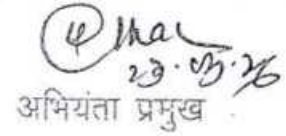 23.05.26
अभियंता प्रमुख